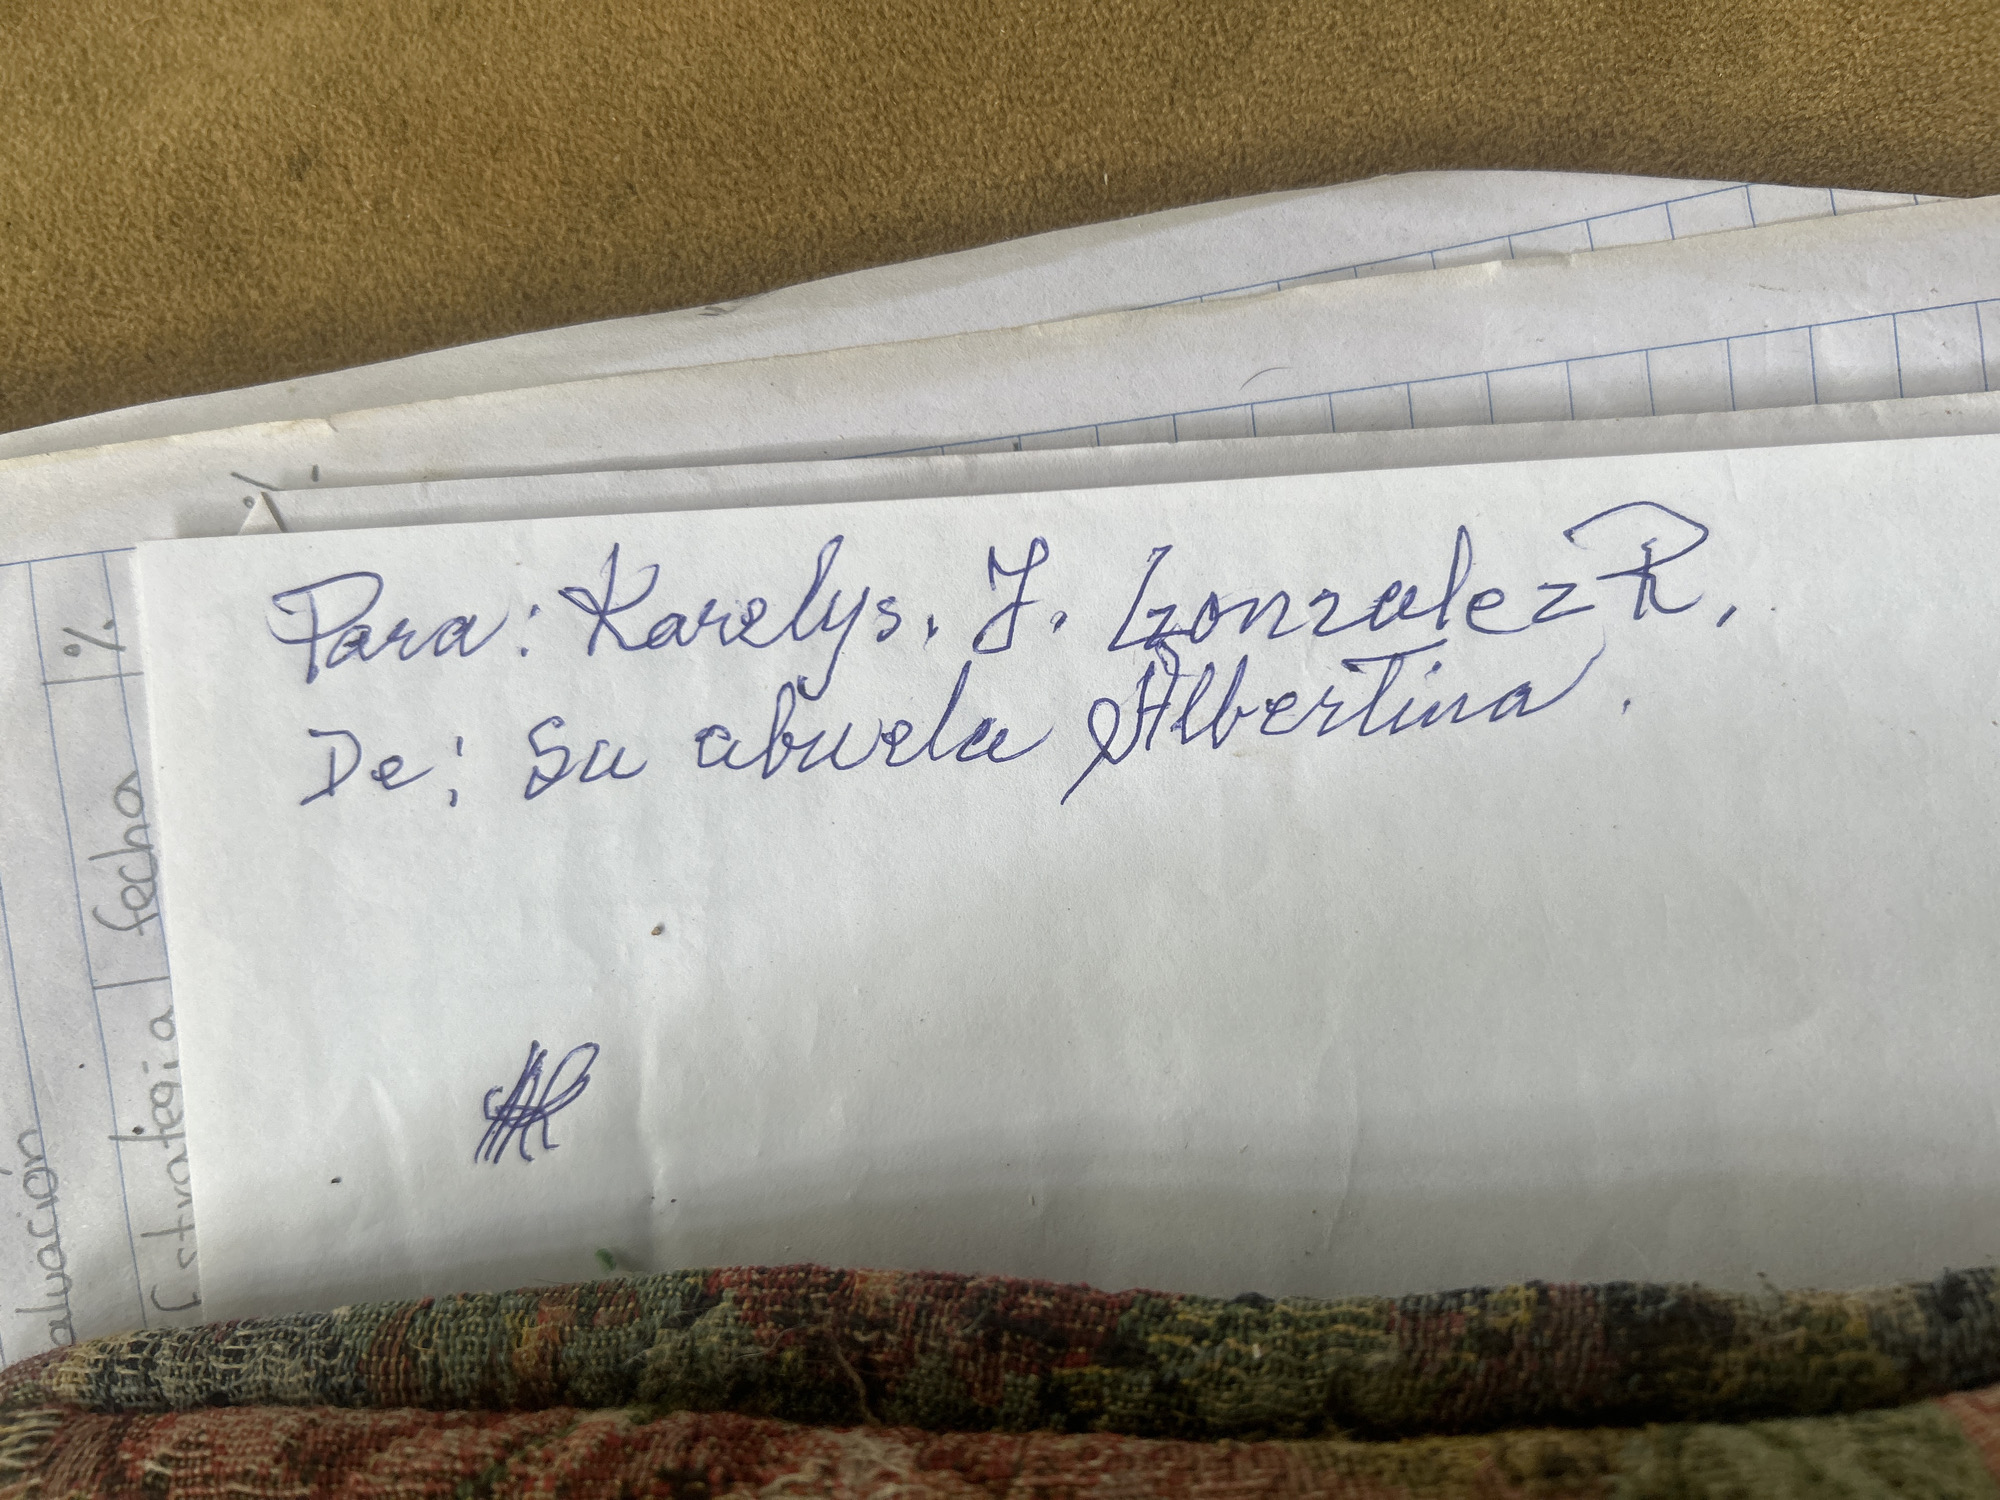 Para: Karelys. J. Gonzalez R.
De: Su abuela Albertina.
%
fecha
Estrategia
aluación